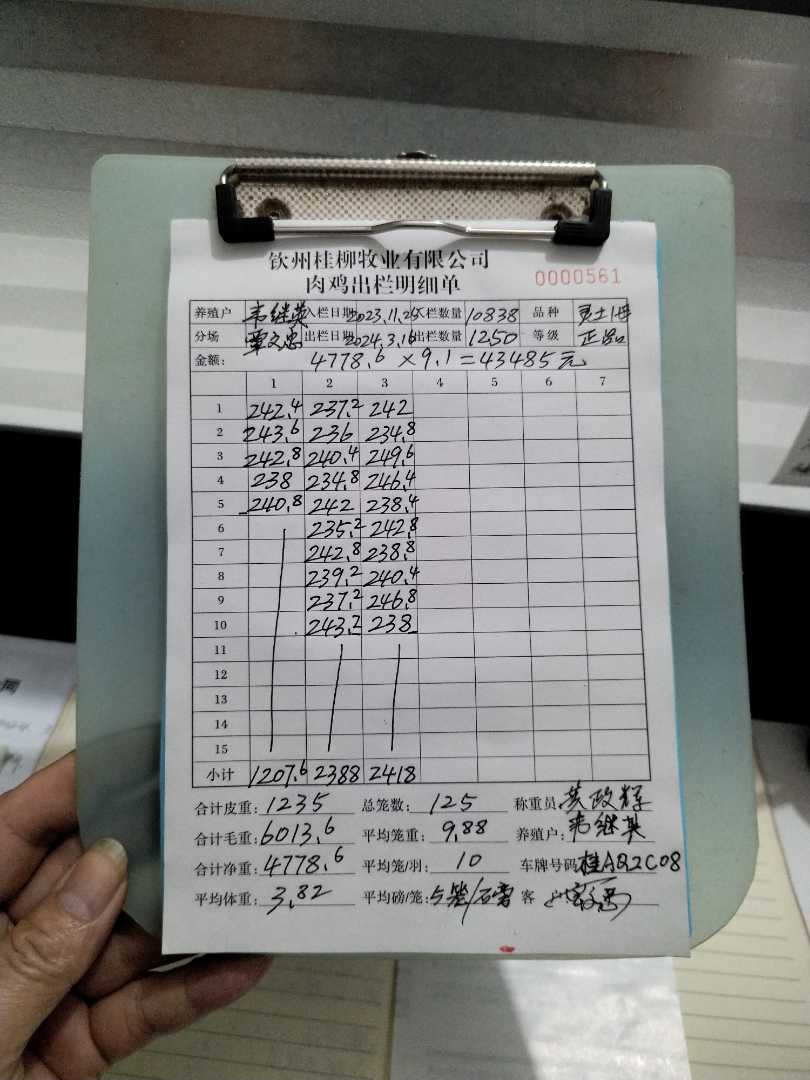 钦州桂柳牧业有限公司
肉鸡出栏明细单 0000561
养殖户 韦继英 入栏日期 2023.11.25 入栏数量 10838 品种
分场 覃文忠 出栏日期 2024.3.16 出栏数量 1250 等级 正品
金额: 4778.6 × 9.1 = 43485元
1 2 3 4 5 6 7
1 242.4 237.2 242
2 243.6 236 234.8
3 242.8 240.4 249.6
4 238 234.8 246.4
5 240.8 242 238.4
6 235.2 242.8
7 242.8 238.8
8 239.2 240.4
9 237.2 246.8
10 243.2 238
11
12
13
14
15
小计 1207.6 2388 2418
合计皮重: 1235 总笼数: 125 称重员: 黄政辉
合计毛重: 6013.6 平均笼重: 9.88 养殖户: 韦继英
合计净重: 4778.6 平均笼/羽: 10 车牌号码 桂AQ2C08
平均体重: 3.82 平均磅/笼: 5笼/磅 客户